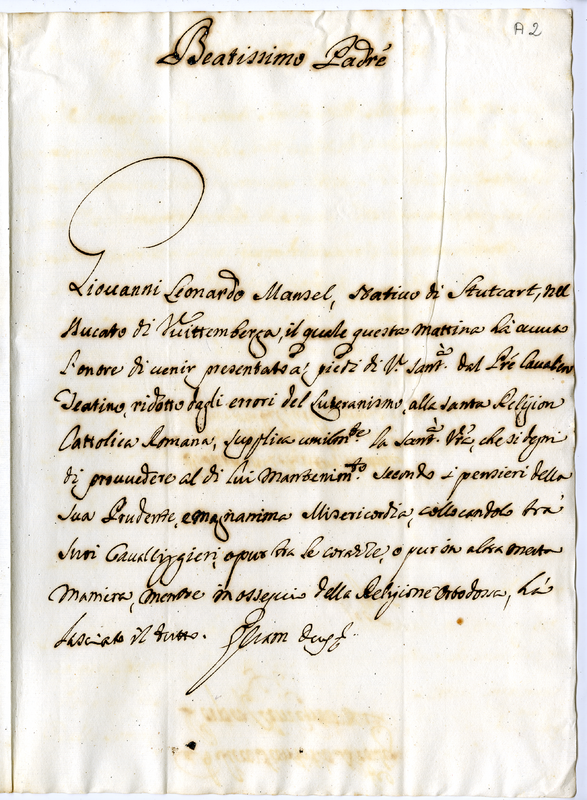 A 2
Beatissimo Padre
Giovanni Leonardo Mansel, Nativo di Stutcart, nel
Ducato di Vvittemberga, il quale questa mattina hà avuto
l'onore di venir presentato a' piedi di V. Santà. dal Pre Cavalier
Teatino, ridotto dagli errori del Luteranismo, alla santa Religion
Cattolica Romana, supplica umilmte. la Santà. Vra, che si degni
di provvedere al di lui mantenimto. secondo i pensieri della
sua Prudente, e magnanima Misericordia, collocandolo trà
suoi Cavalleggieri, o pur tra le corazze, o pur in altra
Maniera, mentre in ossequio della Religione Ortodossa, hà
lasciato il tutto.